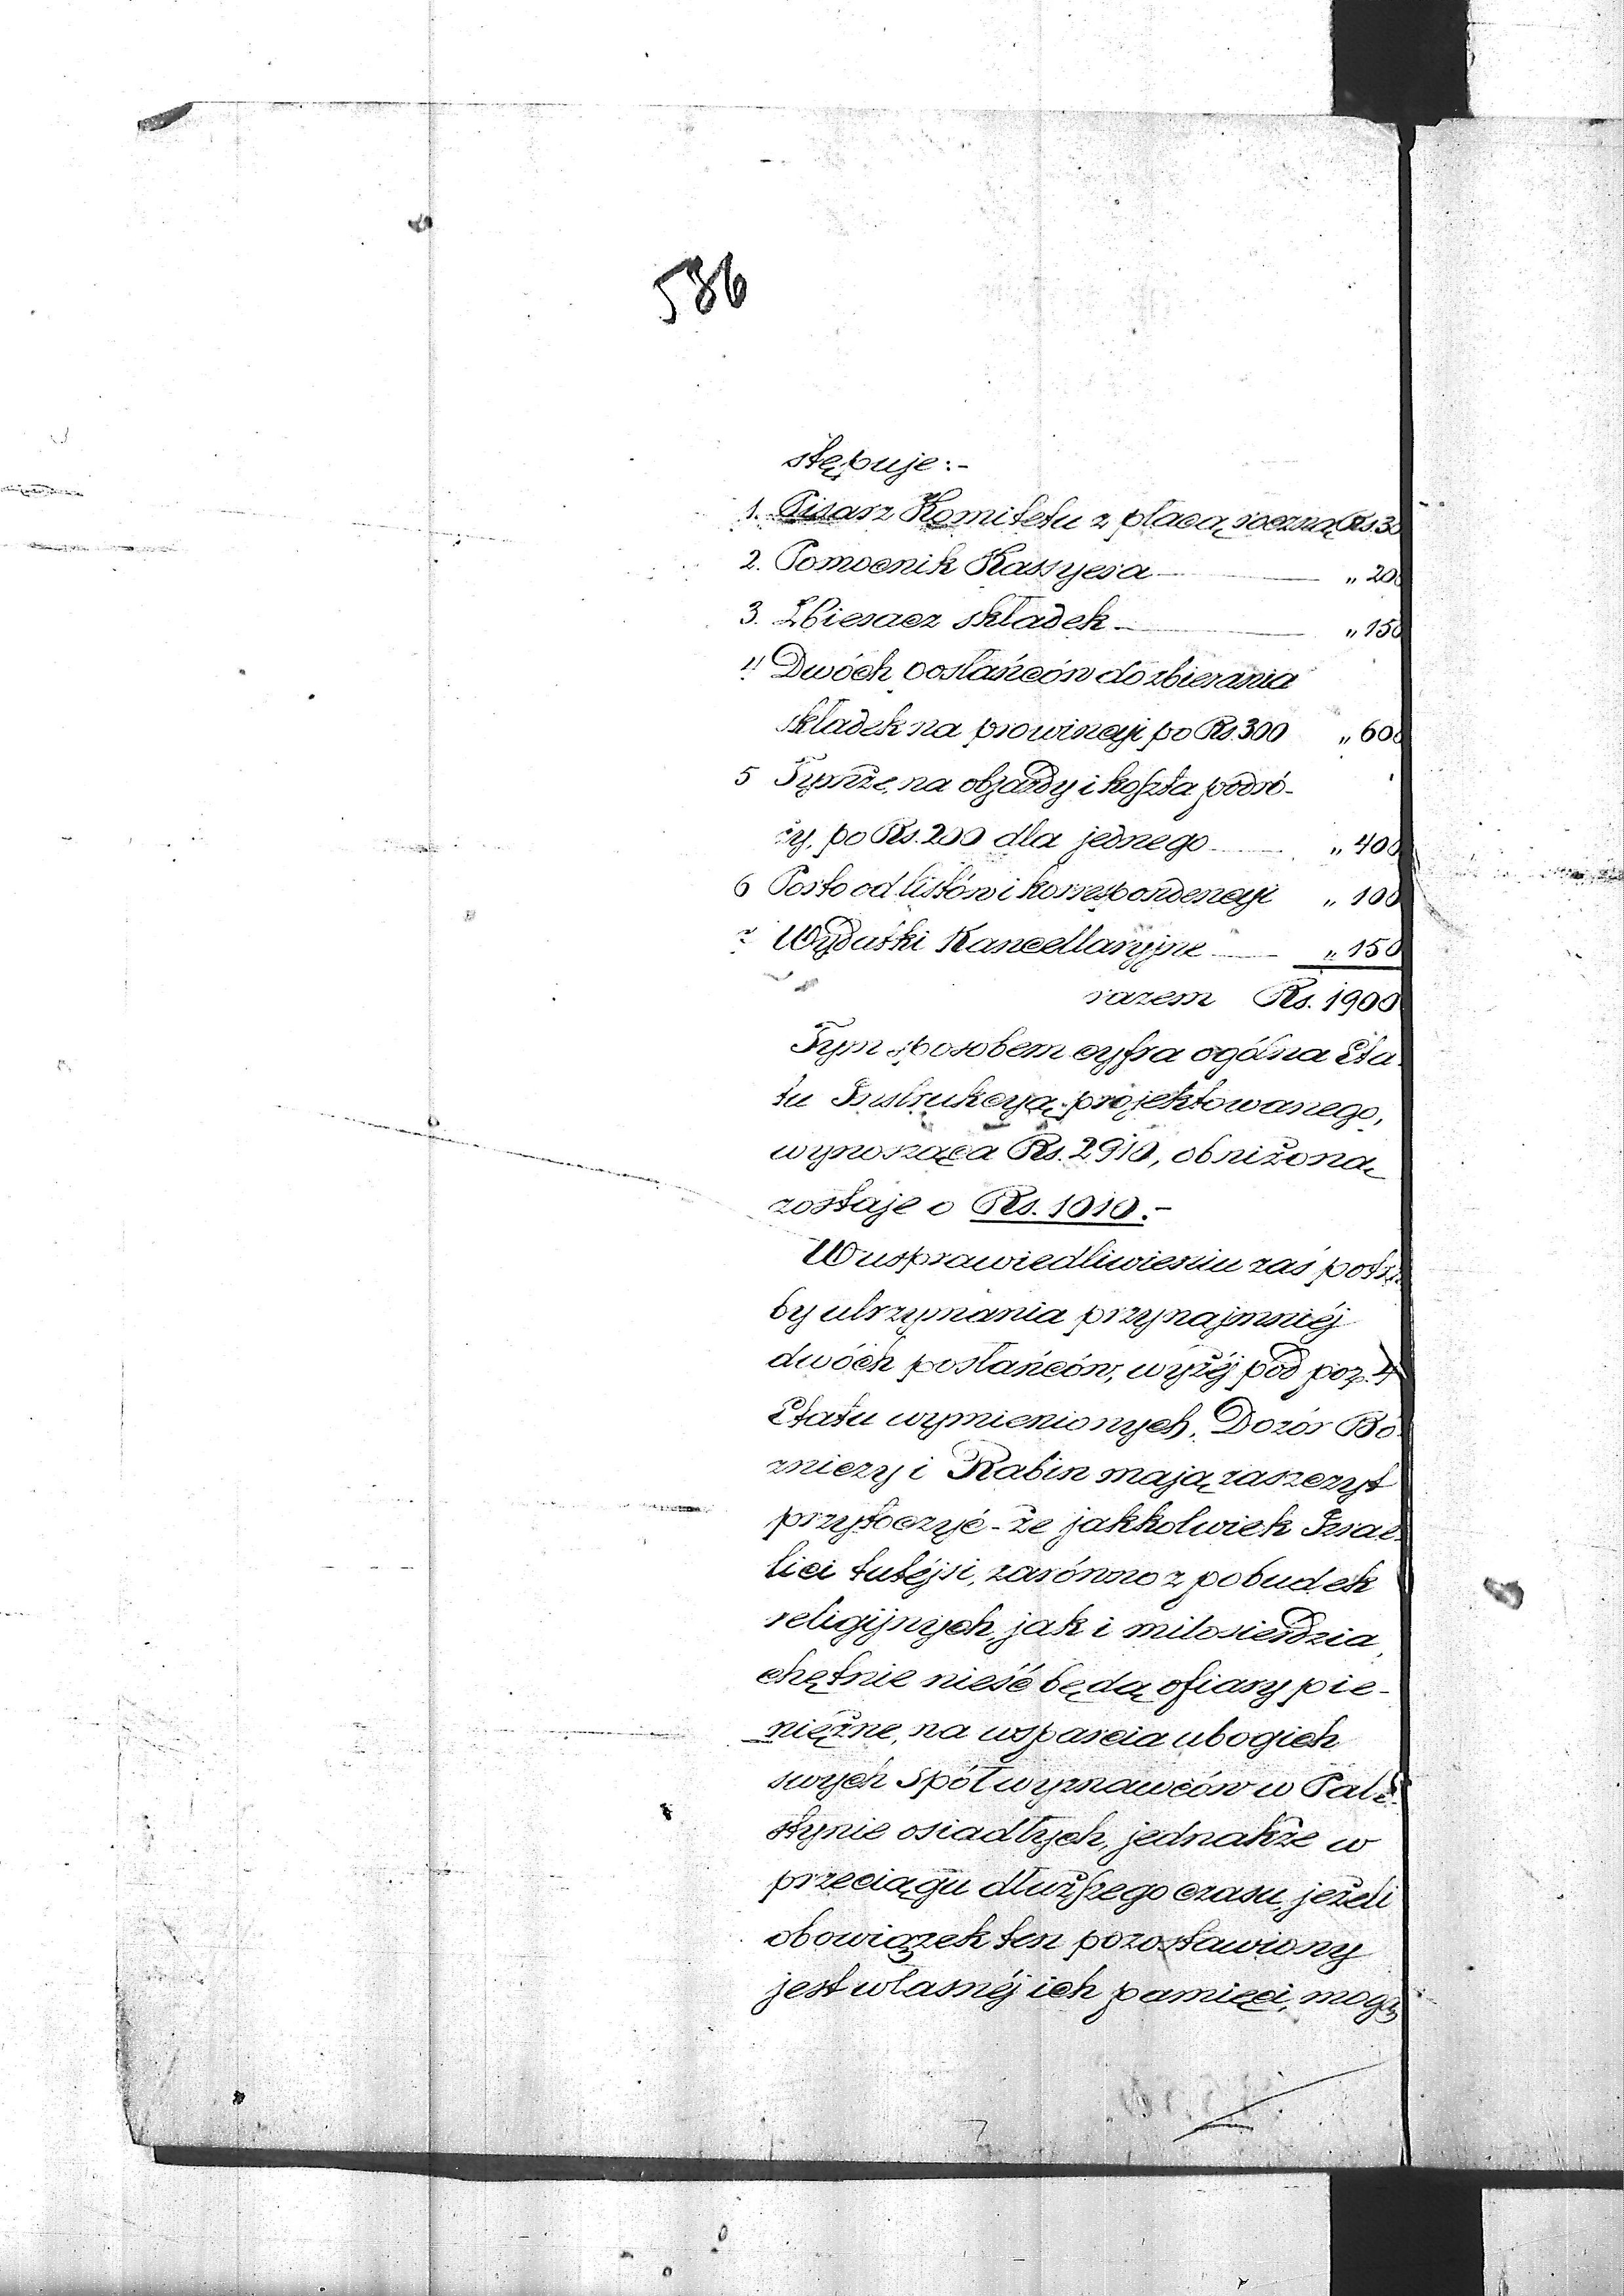 586
stępuje:-
1. Pisarz Komitetu z płacą roczną Rs. 30
2. Pomocnik Kassyera — „ 200
3. Zbieracz składek — „ 150
4 Dwóch posłańców do zbierania
składek na prowincyi po Rs. 300 „ 600
5 Tymże, na objazdy i koszta podró-
ży, po Rs. 200 dla jednego — „ 400
6 Porto od listów i korrespondencyi „ 100
7 Wydatki Kancellaryjne — „ 150
razem Rs. 1900
Tym sposobem cyfra ogólna Eta
tu Instrukcyą projektowanego,
wynosząca Rs. 2910, obniżoną
zostaje o Rs. 1010.-
W usprawiedliwieniu zaś potrze
by utrzymania przynajmniéj
dwóch posłańców, wyżéj pod poz. 4
Etatu wymienionych, Dozór Bó
zniczy i Rabin mają zaszczyt
przytoczyć - że jakkolwiek Izrae
lici tutéjsi, zarówno z pobudek
religijnych, jak i miłosierdzia,
chętnie nieść będą ofiary pie-
niężne, na wsparcia ubogich
swych spółwyznawców w Pale-
stynie osiadłych, jednakże w
przeciągu dłuższego czasu, jeżeli
obowiązek ten pozostawiony
jest własnéj ich pamięci, mogą